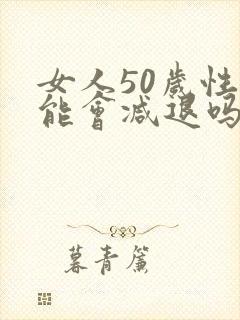 女人50歲性
能會減退吗
暮青簾